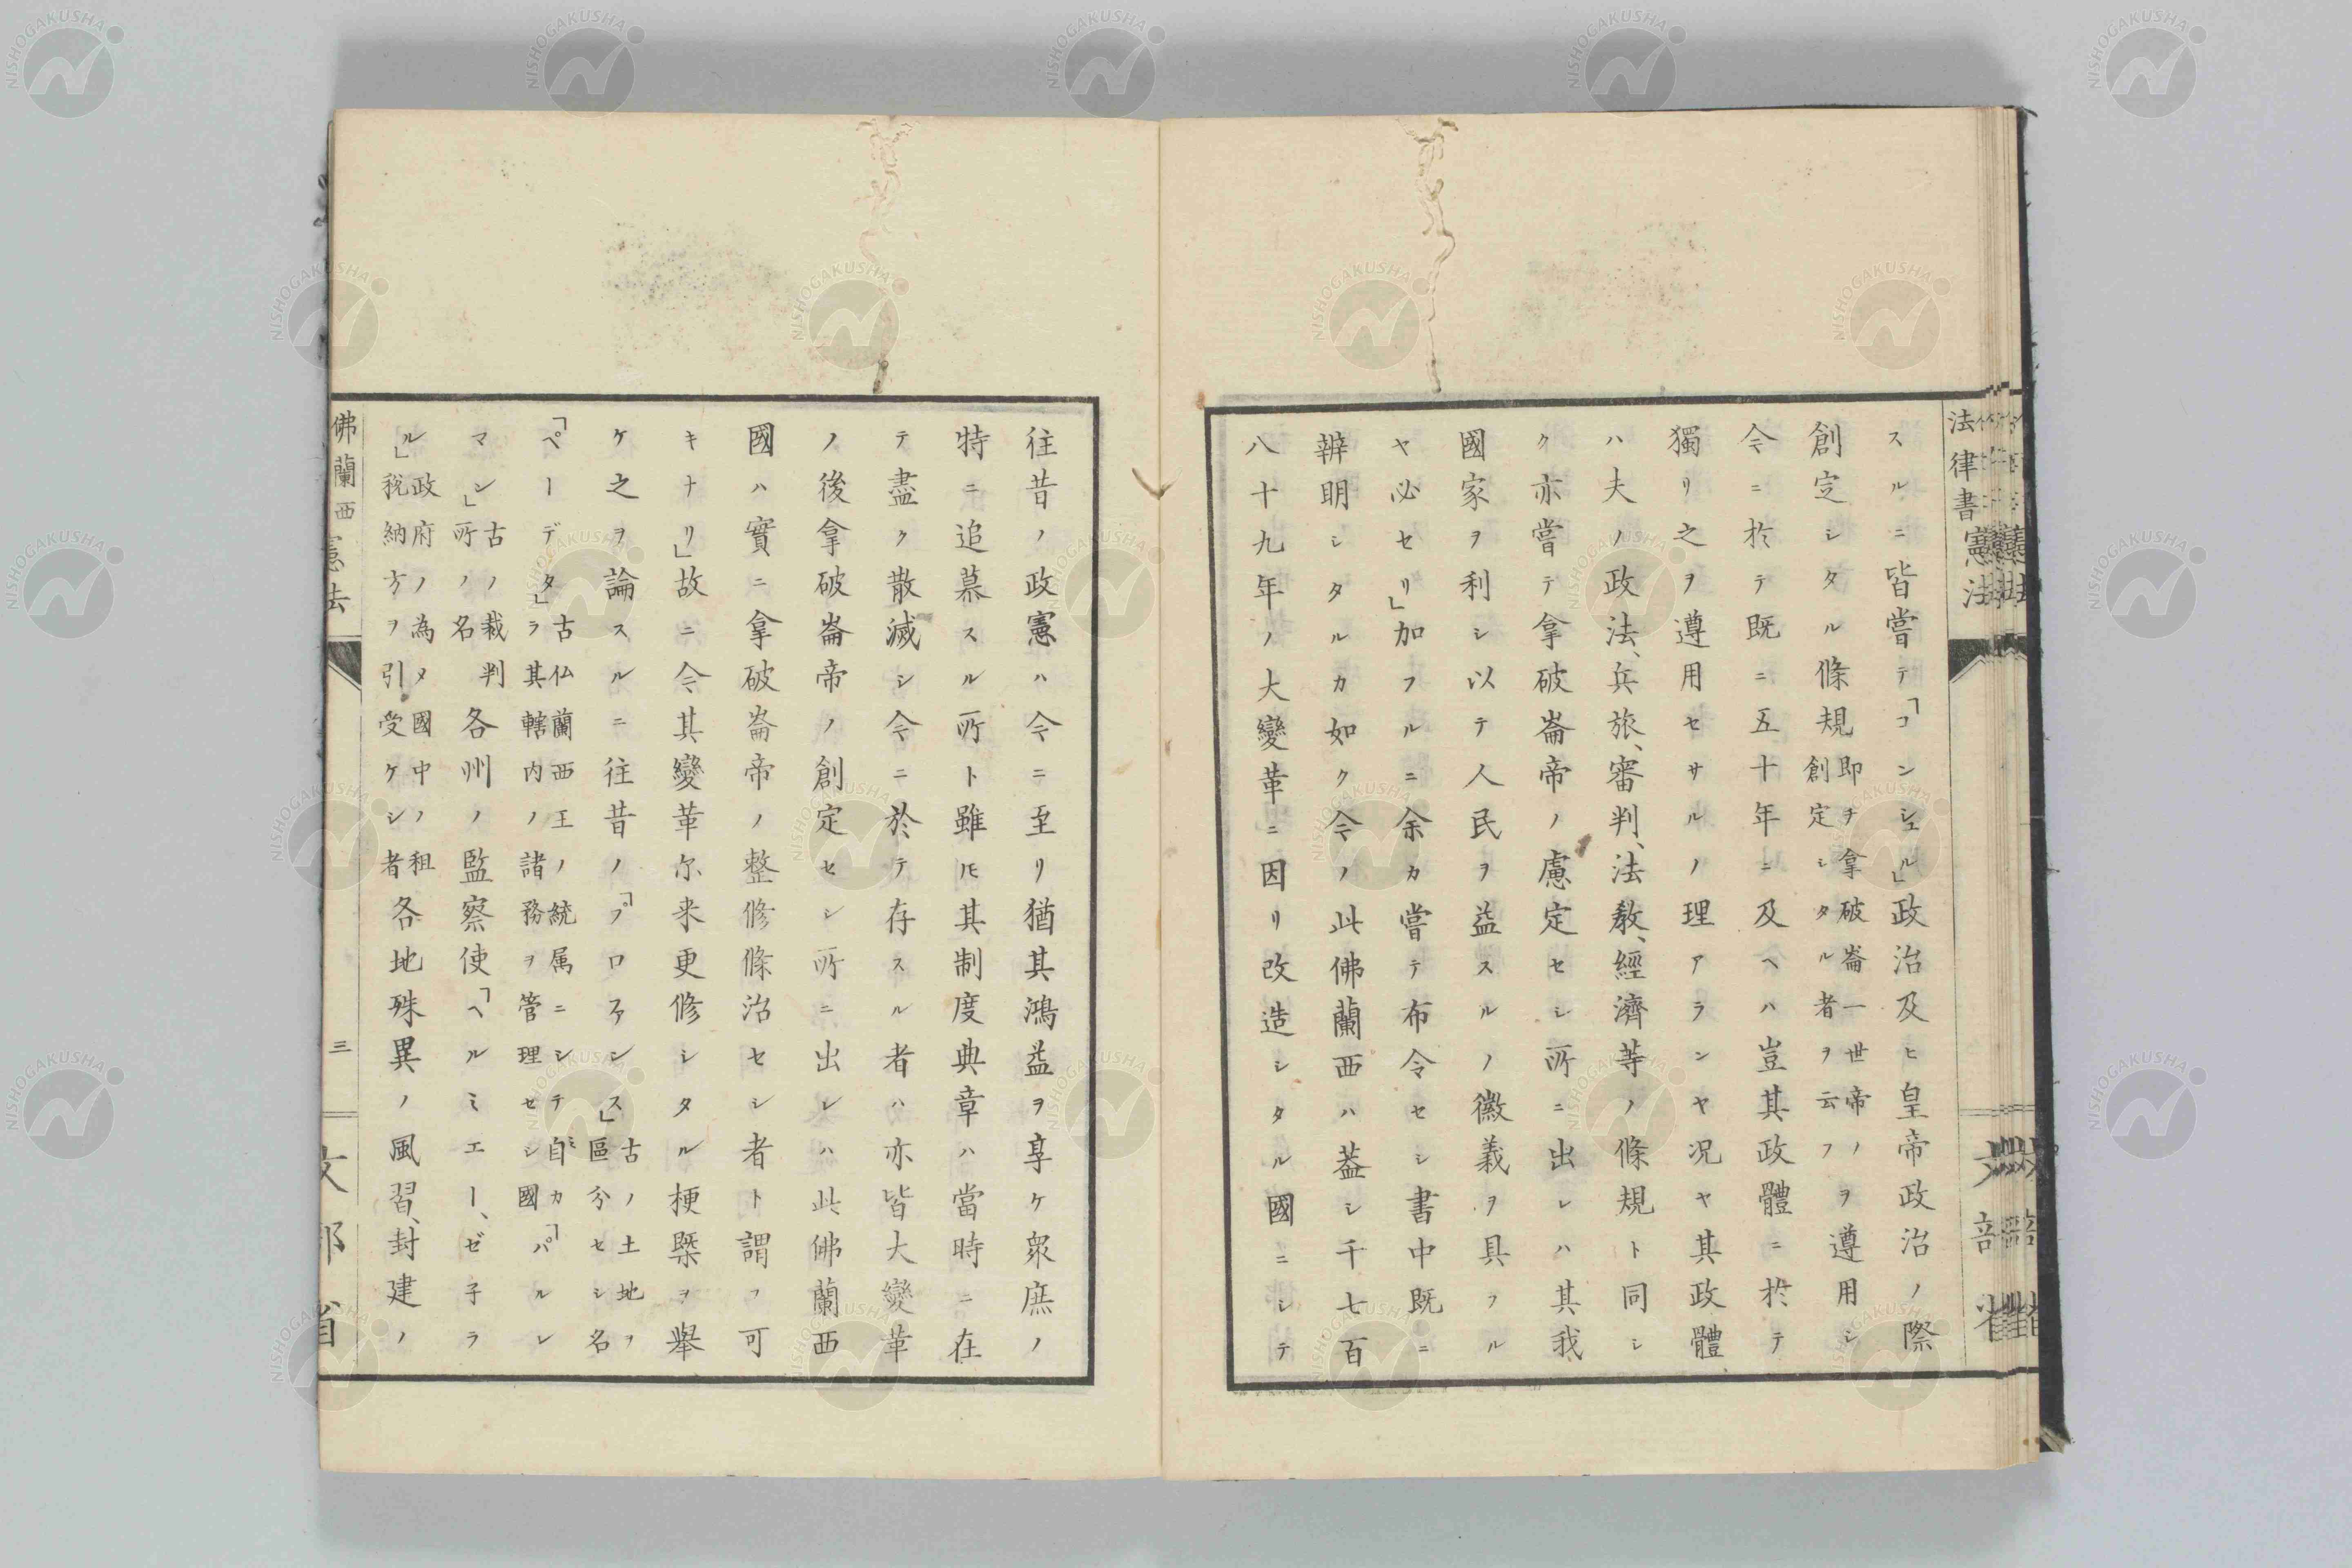 法律書 憲法
スルニ皆嘗テ「コンシュル」政治及ヒ皇帝政治ノ際
創定シタル條規即チ拿破崙一世帝ノ創定シタル者ヲ云フヲ遵用シ
今ニ於テ既ニ五十年ニ及ヘハ豈其政體ニ於テ
獨リ之ヲ遵用セサルノ理アランヤ况ヤ其政體
ハ夫ノ政法、兵旅、審判、法教、經濟等ノ條規ト同シ
ク亦嘗テ拿破崙帝ノ慮定セシ所ニ出レハ其我
國家ヲ利シ以テ人民ヲ益スルノ徽義ヲ具フル
ヤ必セリ」加フルニ余カ嘗テ布令セシ書中既ニ
辨明シタルカ如ク今ノ此佛蘭西ハ葢シ千七百
八十九年ノ大變革ニ因リ改造シタル國ニシテ
往昔ノ政憲ハ今ニ至リ猶其鴻益ヲ享ケ衆庶ノ
特ニ追慕スル所ト雖𪜈其制度典章ハ當時ニ在
テ盡ク散滅シ今ニ於テ存スル者ハ亦皆大變革
ノ後拿破崙帝ノ創定セシ所ニ出レハ此佛蘭西
國ハ實ニ拿破崙帝ノ整修條治セシ者ト謂フ可
キナリ」故ニ今其變革尓来更修シタル梗槩ヲ舉
ケ之ヲ論スルニ往昔ノ「プロヷンス」古ノ土地ヲ區分セシ名
「ペーデタ」古仏蘭西王ノ統属ニシテ自カラ其轄内ノ諸務ヲ管理セシ國「パルレ
マン」古ノ裁判所ノ名各州ノ監察使「ヘルミエー、ゼ子ラ
ル」政府ノ為メ國中ノ租税納方ヲ引受ケシ者各地殊異ノ風習、封建ノ
佛蘭西憲法
三
文部省
NISHOGAKUSHA